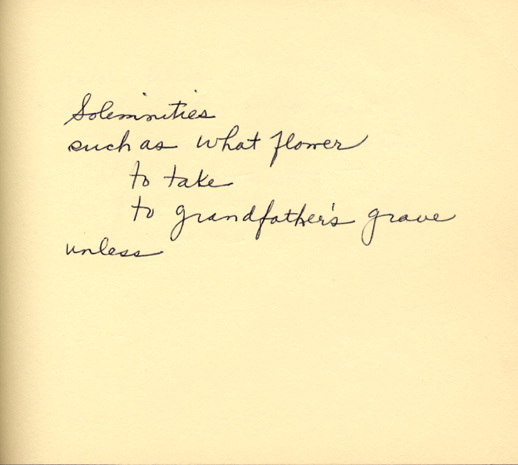 Solemnities
such as what flower
to take
to grandfather's grave
unless